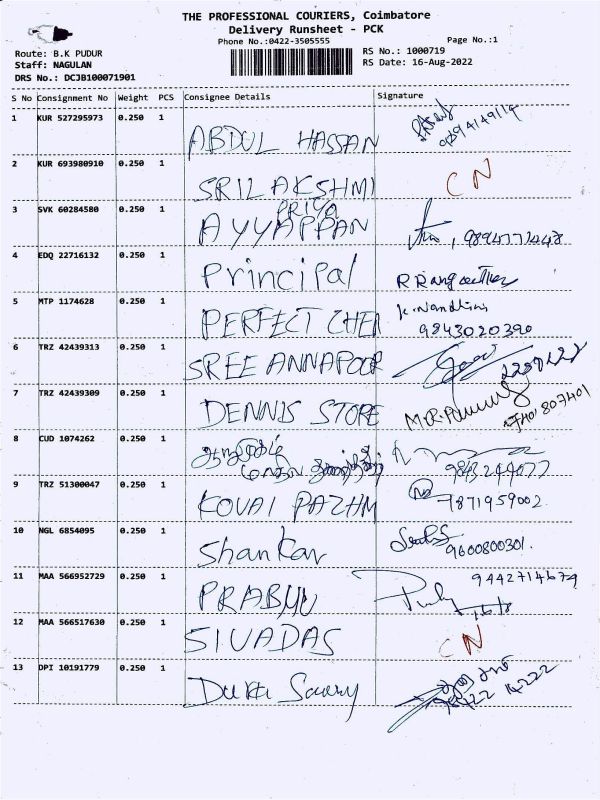 THE PROFESSIONAL COURIERS, Coimbatore
Delivery Runsheet - PCK
Phone No.:0422-3505555
Page No.:1
Route: B.K PUDUR
RS No.: 1000719
Staff: NAGULAN
RS Date: 16-Aug-2022
DRS No.: DCJB100071901
S No Consignment No Weight PCS Consignee Details Signature
1 KUR 527295973 0.250 1 ABDUL HASSAN
2 KUR 693980910 0.250 1 SRILAKSHMI CN
PRIYA
3 SVK 60284580 0.250 1 AYYAPPAN
4 EDQ 22716132 0.250 1 Principal
5 MTP 1174628 0.250 1 PERFECT CHEN K. Nandhini
9843020390
6 TRZ 42439313 0.250 1 SREE ANNAPOOR
7 TRZ 42439309 0.250 1 DENNIS STORE
8 CUD 1074262 0.250 1
9843244077
9 TRZ 51300047 0.250 1 KOVAI PAZHM 9871959002
10 NGL 6854095 0.250 1 Shankar 9600800301
11 MAA 566952729 0.250 1 PRABHU 9442714679
12 MAA 566517630 0.250 1 SIVADAS CN
13 DPI 10191779 0.250 1